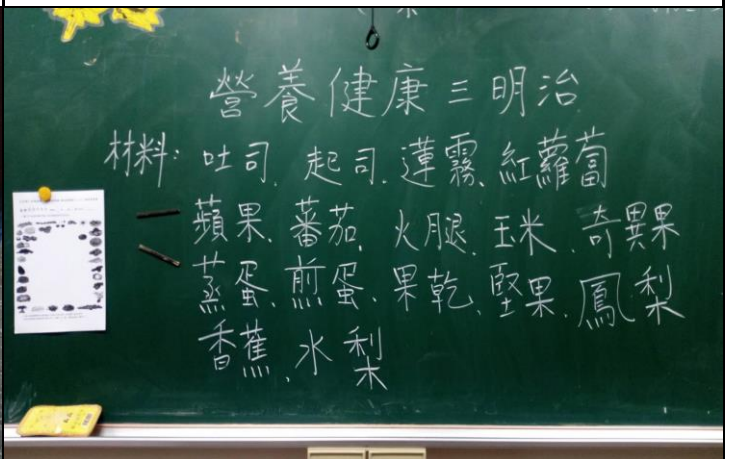 營養健康三明治
材料: 吐司、起司、蓮霧、紅蘿蔔
蘋果、蕃茄、火腿、玉米、奇異果
蒸蛋、煎蛋、果乾、堅果、鳳梨
香蕉、水梨